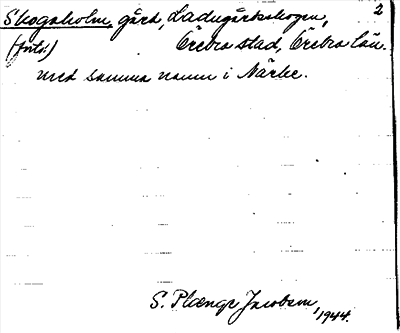 Skogaholm, gård, Ladugårdsskogen, 2
(forts.) Örebro stad, Örebro län.
med samma namn i Närke.
S. Plænge Jacobson, 1944.